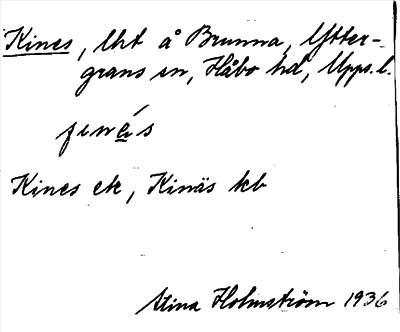 Kines, lht å Brunna, Ytter-
grans sn, Håbo hd, Upps. l.
Kines ek, Kinäs kb
Stina Holmström 1936